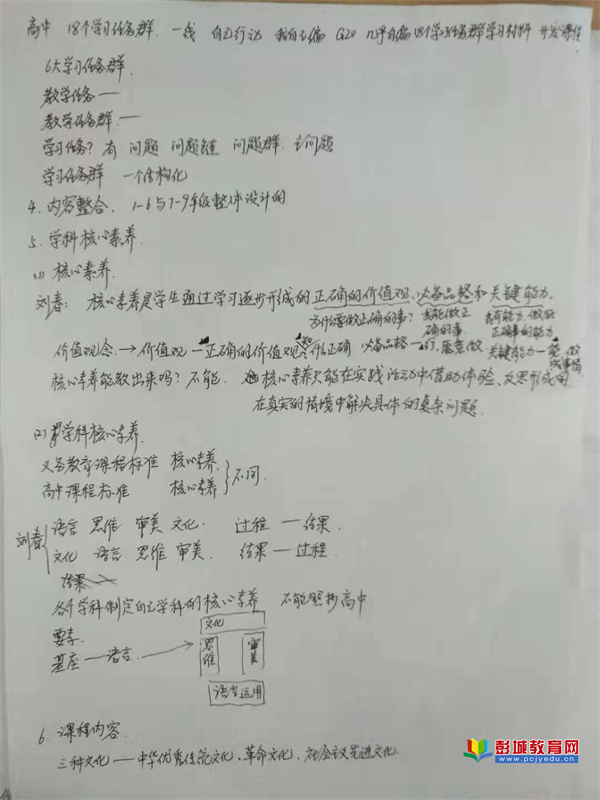 高中 18个学习任务群. 一线 自己行动 我自己编 G20 几乎自编18个学习任务群学习材料 开发课程
6大学习任务群.
教学任务—
教学任务群—
学习任务? 有 问题 问题链 问题群. 主问题
学习任务群 一个结构化.
4. 内容整合. 1-6与7-9年级整体设计的
5. 学科核心素养.
(1) 核心素养.
刘春: 核心素养是学生通过学习逐步形成的正确的价值观、必备品格和关键能力.
为什么要做正确的事? 去能做正确的事 去有能力做好正确事的能力
价值观念. → 价值观 — 正确的价值观 什么正确 必备品格—行、愿意做 关键能力—能做成事情
核心素养能教出来吗? 不能. 核心素养只能在实践活动中借助体验、反思形成的
在真实的情境中解决具体的复杂问题.
(2) 学科核心素养.
义务教育课程标准 核心素养.
高中课程标准 核心素养 } 不同.
刘春 { 语言 思维 审美 文化. 过程 — 结果.
文化 语言 思维 审美. 结果 — 过程.
结果
各个学科制定自己学科的核心素养 不能照抄高中
要素. 文化
基座—语言. 思维 审美
语言运用
6. 课程内容.
三种文化——中华优秀传统文化、革命文化、社会主义先进文化.
彭城教育网
www.pcjyedu.cn